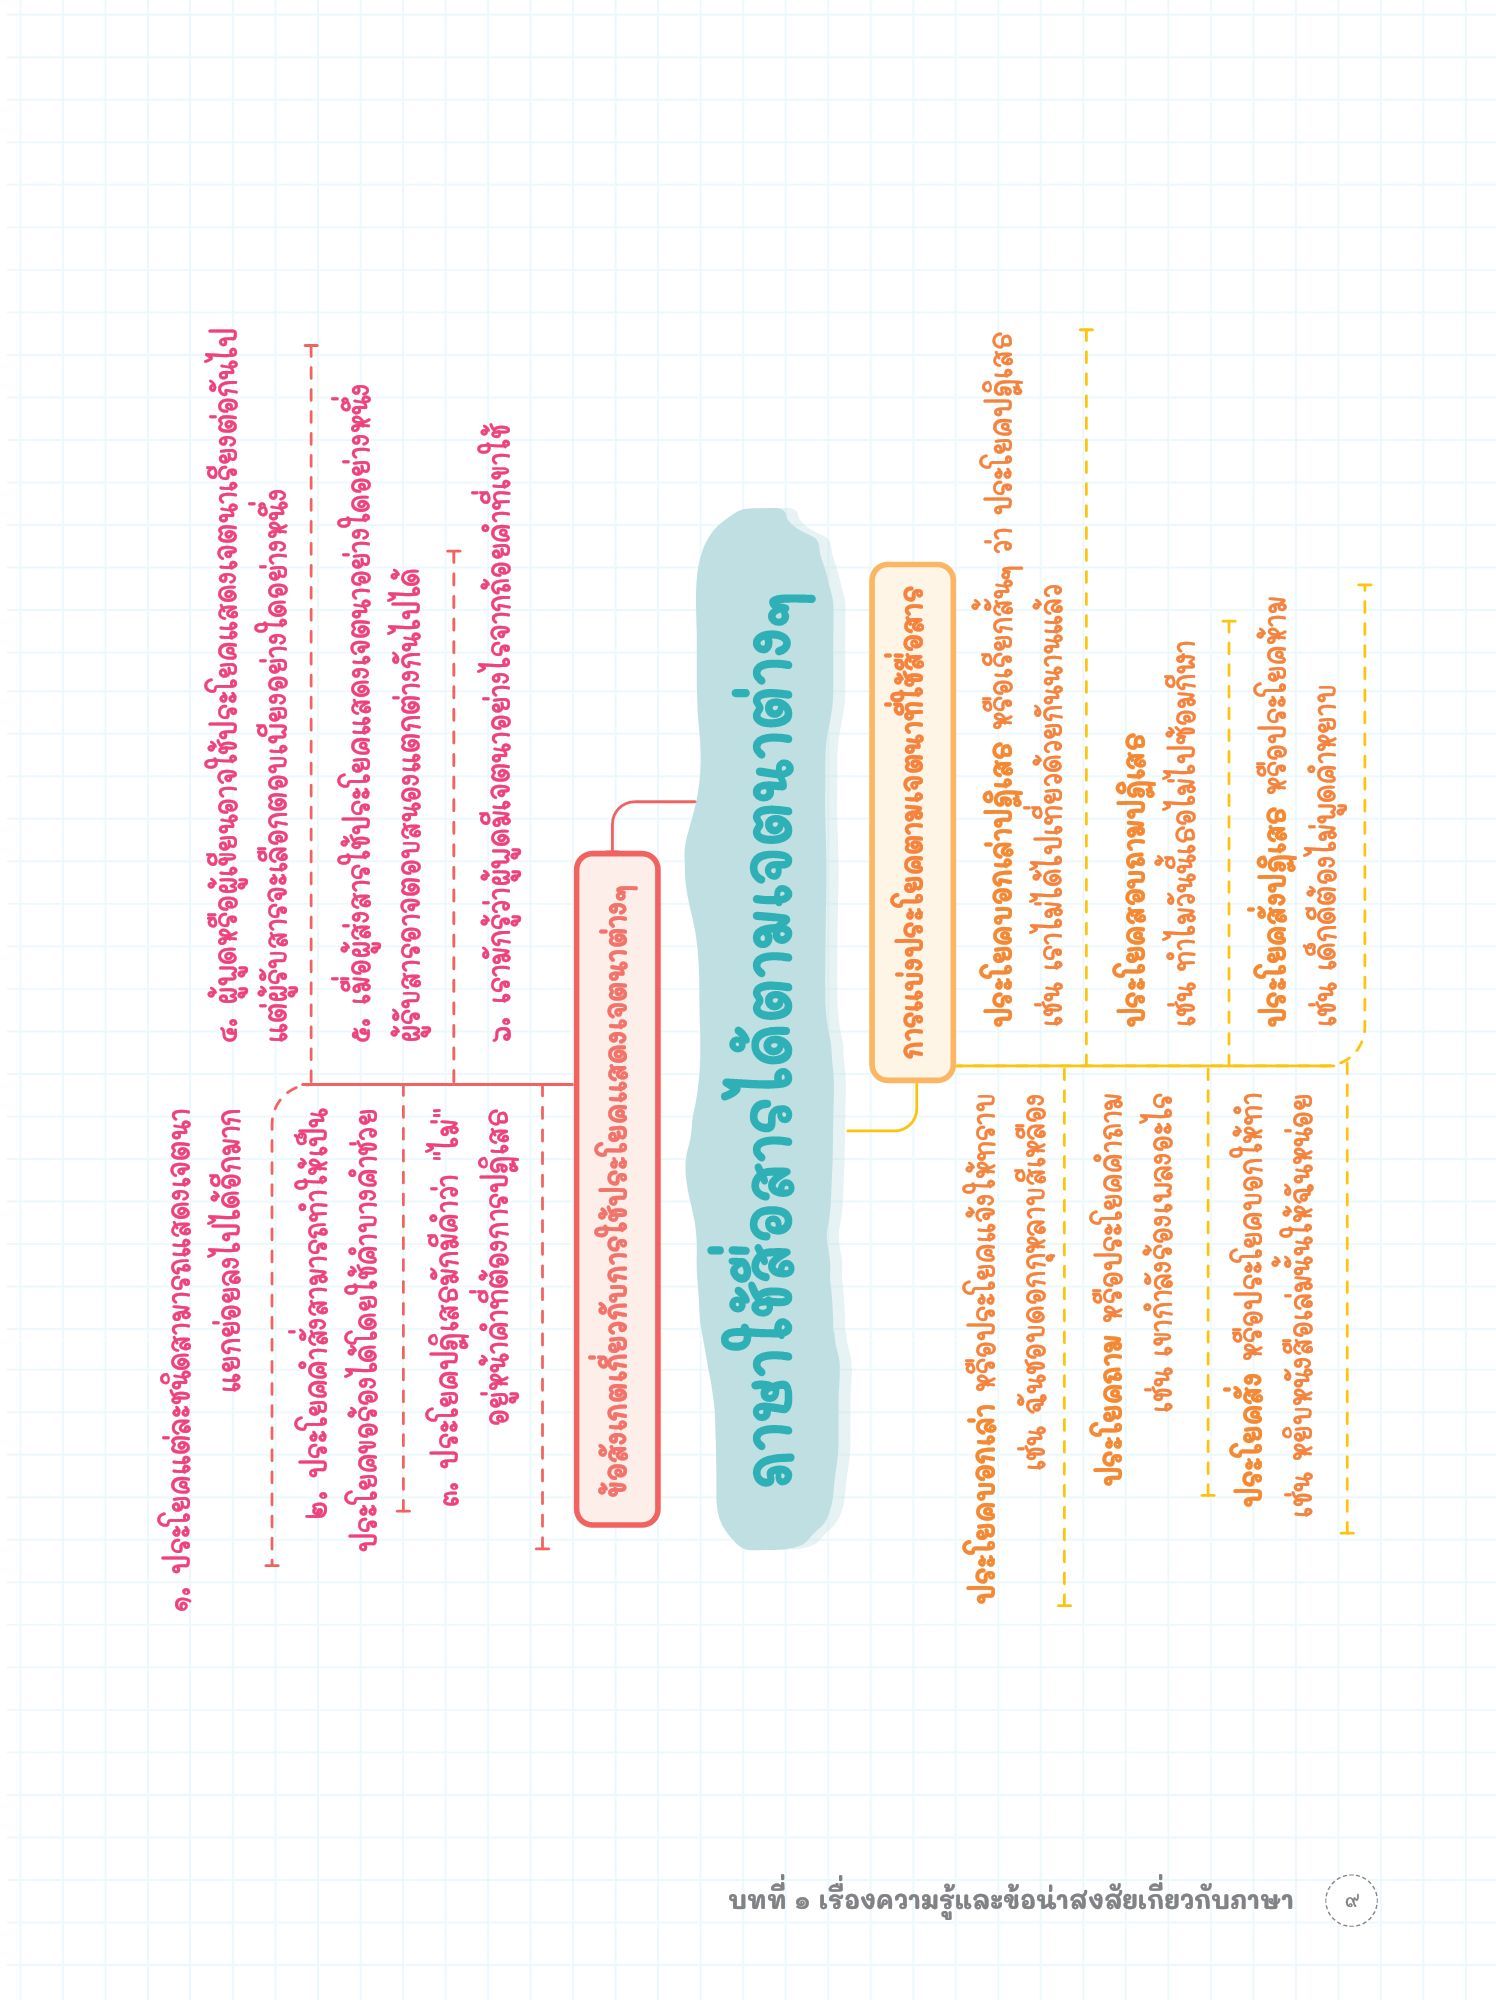 ๑. ประโยคแต่ละชนิดสามารถแสดงเจตนา
แยกย่อยลงไปได้อีกมาก
๒. ประโยคคำสั่งสามารถทำให้เป็น
ประโยคขอร้องได้โดยใช้คำบางคำช่วย
๓. ประโยคปฏิเสธมักมีคำว่า "ไม่"
อยู่หน้าคำที่ต้องการปฏิเสธ
๔. ผู้พูดหรือผู้เขียนอาจใช้ประโยคแสดงเจตนาเรียงต่อกันไป
แต่ผู้รับสารจะเลือกตอบเพียงอย่างใดอย่างหนึ่ง
๕. เมื่อผู้ส่งสารใช้ประโยคแสดงเจตนาอย่างใดอย่างหนึ่ง
ผู้รับสารอาจตอบสนองแตกต่างกันไปได้
๖. เรามักรู้ว่าผู้พูดมีเจตนาอย่างไรจากถ้อยคำที่เขาใช้
ข้อสังเกตเกี่ยวกับการใช้ประโยคแสดงเจตนาต่างๆ
ภาษาใช้สื่อสารได้ตามเจตนาต่างๆ
การแบ่งประโยคตามเจตนาที่ใช้สื่อสาร
ประโยคบอกเล่า หรือประโยคแจ้งให้ทราบ
เช่น ฉันชอบดอกกุหลาบสีเหลือง
ประโยคถาม หรือประโยคคำถาม
เช่น เขากำลังร้องเพลงอะไร
ประโยคสั่ง หรือประโยคบอกให้ทำ
เช่น หยิบหนังสือเล่มนั้นให้ฉันหน่อย
ประโยคบอกเล่าปฏิเสธ หรือเรียกสั้นๆ ว่า ประโยคปฏิเสธ
เช่น เราไม่ได้ไปเที่ยวด้วยกันนานแล้ว
ประโยคสอบถามปฏิเสธ
เช่น ทำไมวันนี้เธอไม่ไปซ้อมกีฬา
ประโยคสั่งปฏิเสธ หรือประโยคห้าม
เช่น เด็กดีต้องไม่พูดคำหยาบ
บทที่ ๑ เรื่องความรู้และข้อน่าสงสัยเกี่ยวกับภาษา
๙